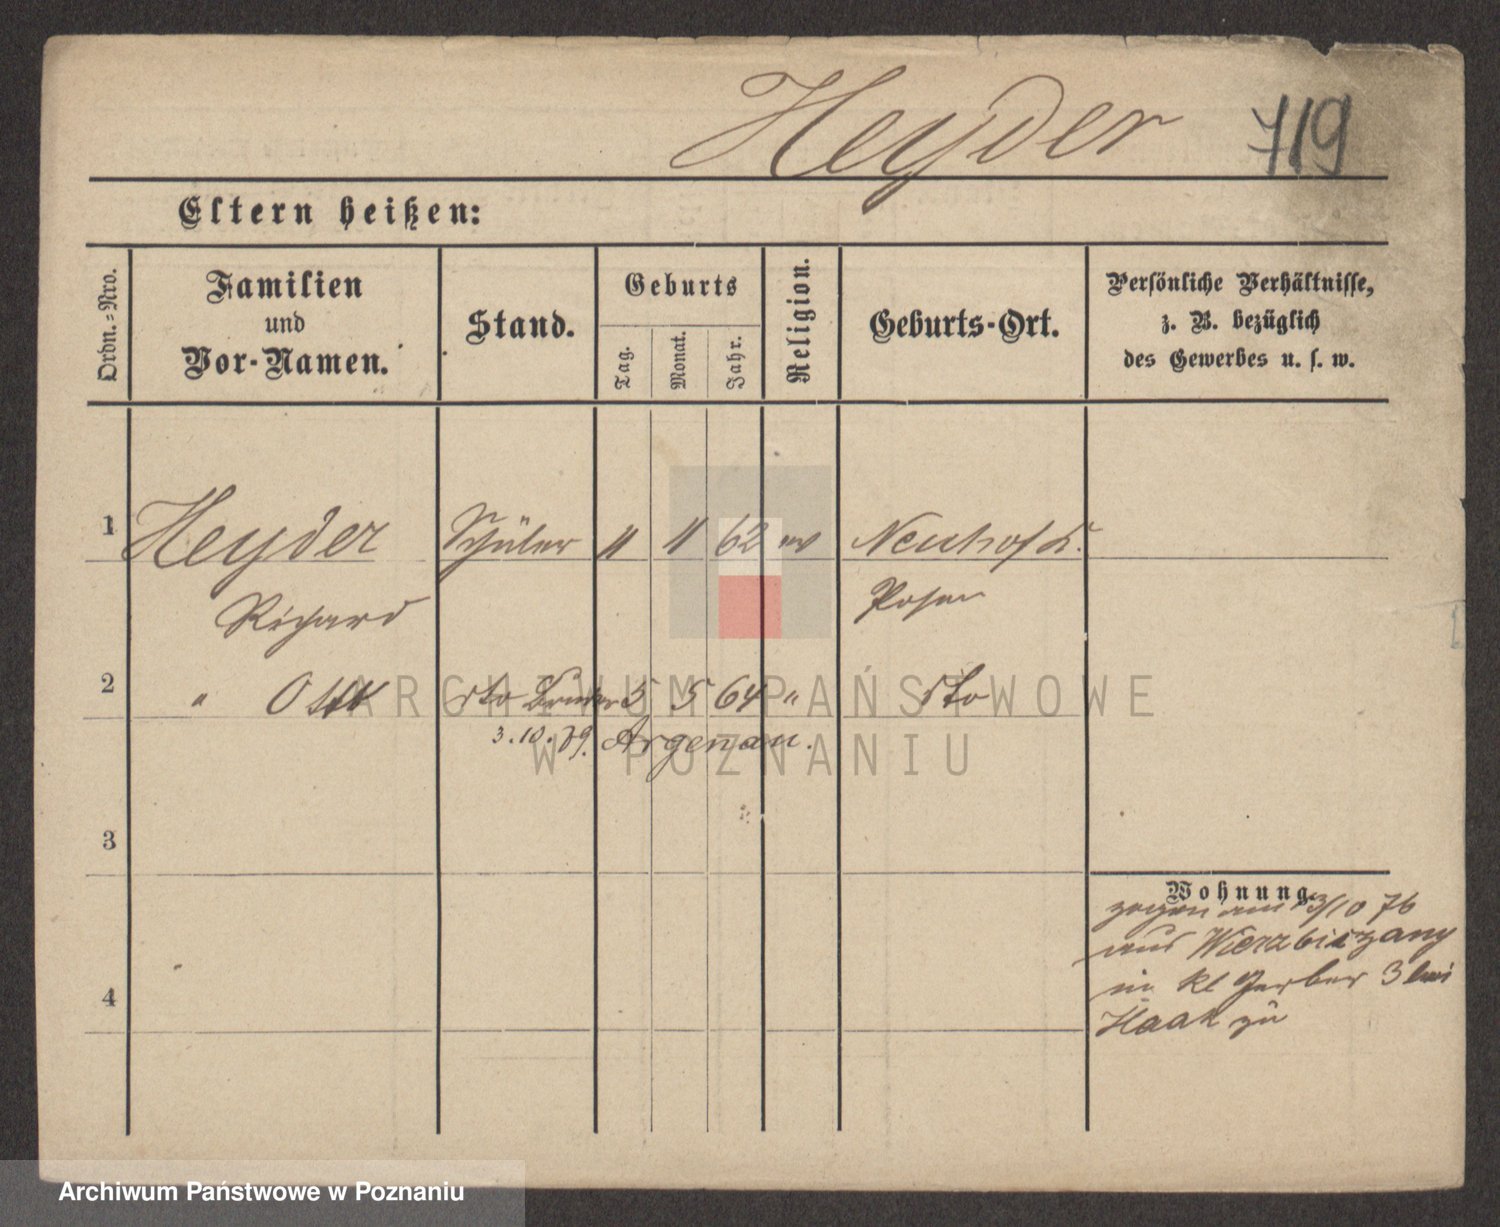 Heyder 719
Eltern heißen:
Ordn.-Nro.
Familien
und
Vor-Namen.
Stand.
Geburts
Tag.
Monat.
Jahr.
Religion.
Geburts-Ort.
Persönliche Verhältnisse,
z. B. bezüglich
des Gewerbes u. s. w.
1 Heyder Schüler " " 62 ev Neuhof
Richard Posen
2 " Otto dto Bruder 5 5 64 " dto
3.10.79. Argenau.
3
Wohnung.
zogen am 13/10 76
aus Wierzbiczany
in kl Gerber 3 bei
Haak zu
4
ARCHIWUM PAŃSTWOWE
W POZNANIU
Archiwum Państwowe w Poznaniu